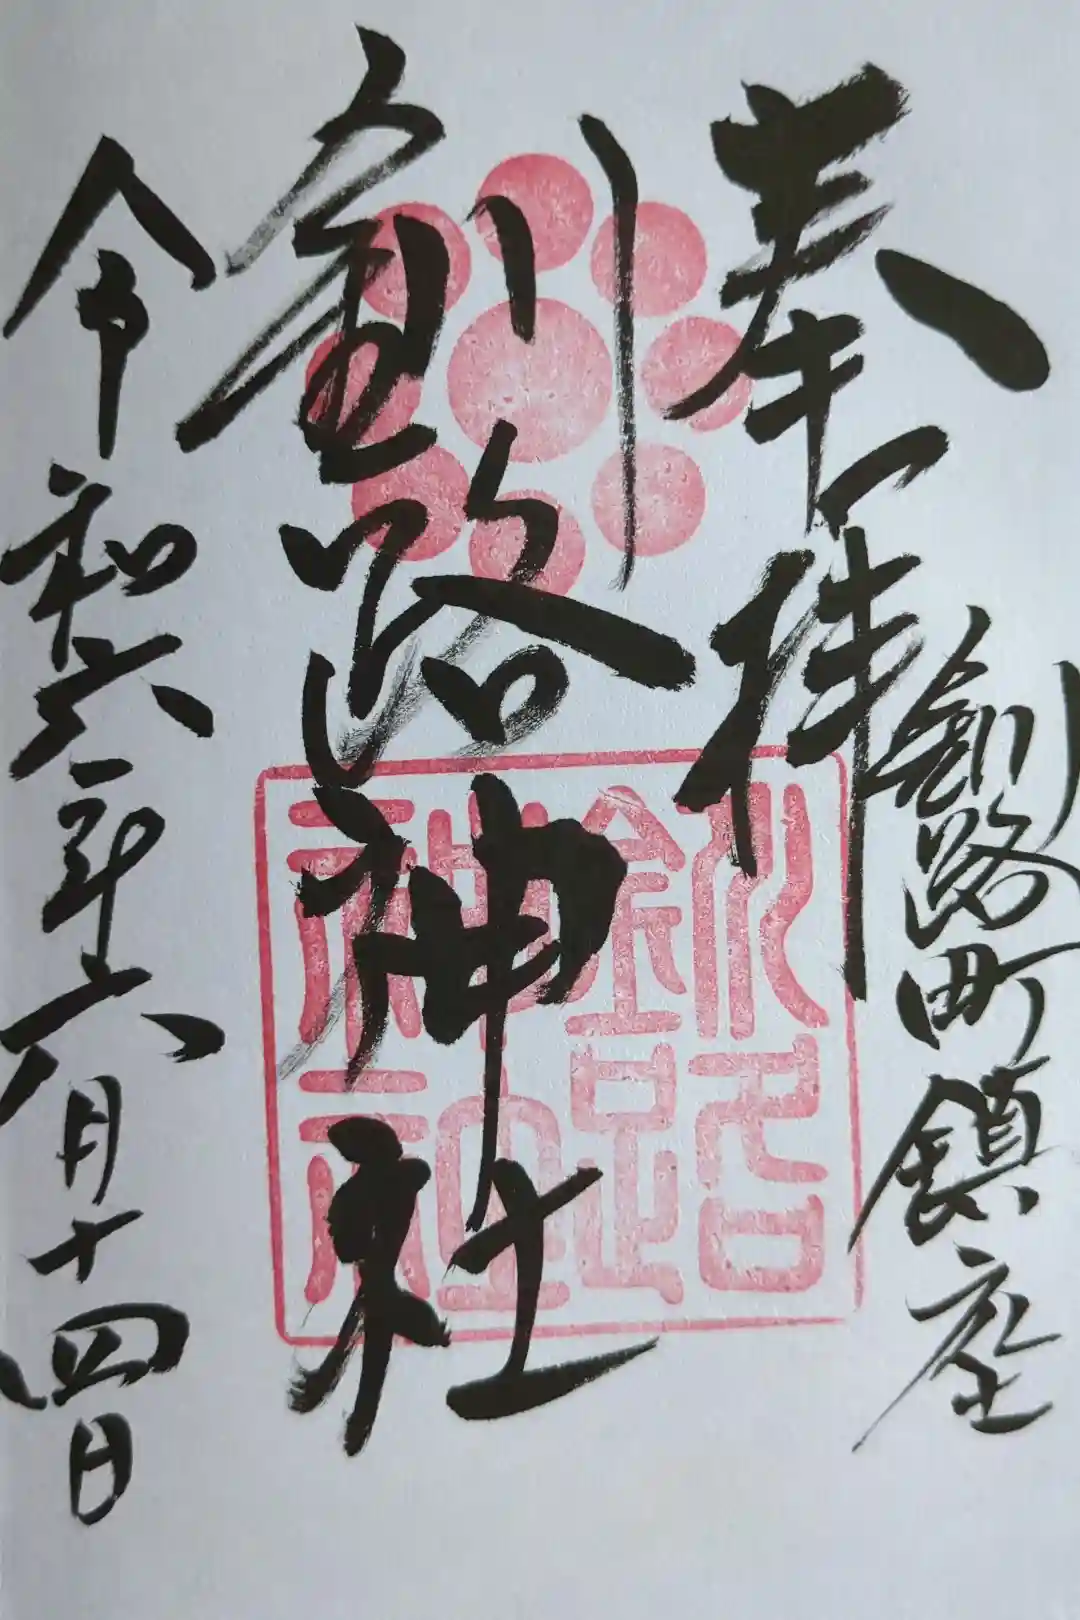 奉拝
釧路町鎮座
釧路神社
釧路
神社
令和六年六月十四日